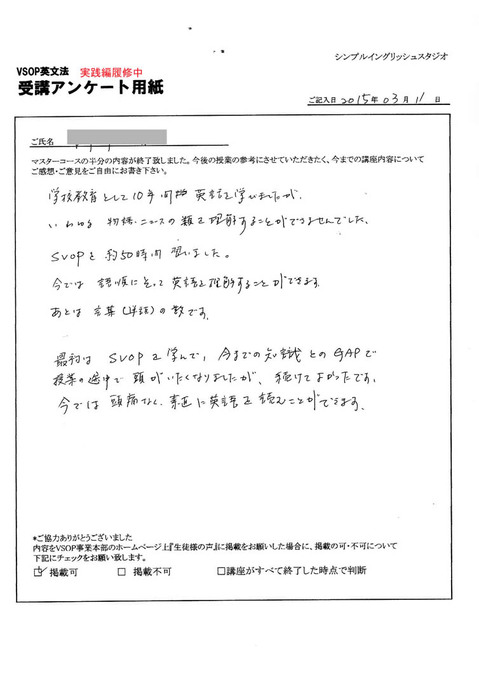 シンプルイングリッシュスタジオ
VSOP英文法 実践編履修中
受講アンケート用紙
ご記入日 2015年 03月 11日
ご氏名
マスターコースの半分の内容が終了致しました。今後の授業の参考にさせていただきたく、今までの講座内容について
ご感想・ご意見をご自由にお書き下さい。
学校教育として10年間 英語を学びましたが、
いわゆる 物語・ニュースの類を理解することができませんでした。
SVOPを約50時間 習いました。
今では 語順にそって英語を理解することができます。
あとは 言葉(単語)の数です。
最初は SVOPを学んで、今までの知識とのGAPで
授業の途中で頭がいたくなりましたが、続けてよかったです。
今では頭痛なく、素直に英語を読むことができます。
*ご協力ありがとうございました
内容をVSOP事業本部のホームページ上『生徒様の声』に掲載をお願いした場合に、掲載の可・不可について
下記にチェックをお願い致します。
☑ 掲載可 □ 掲載不可 □講座がすべて終了した時点で判断